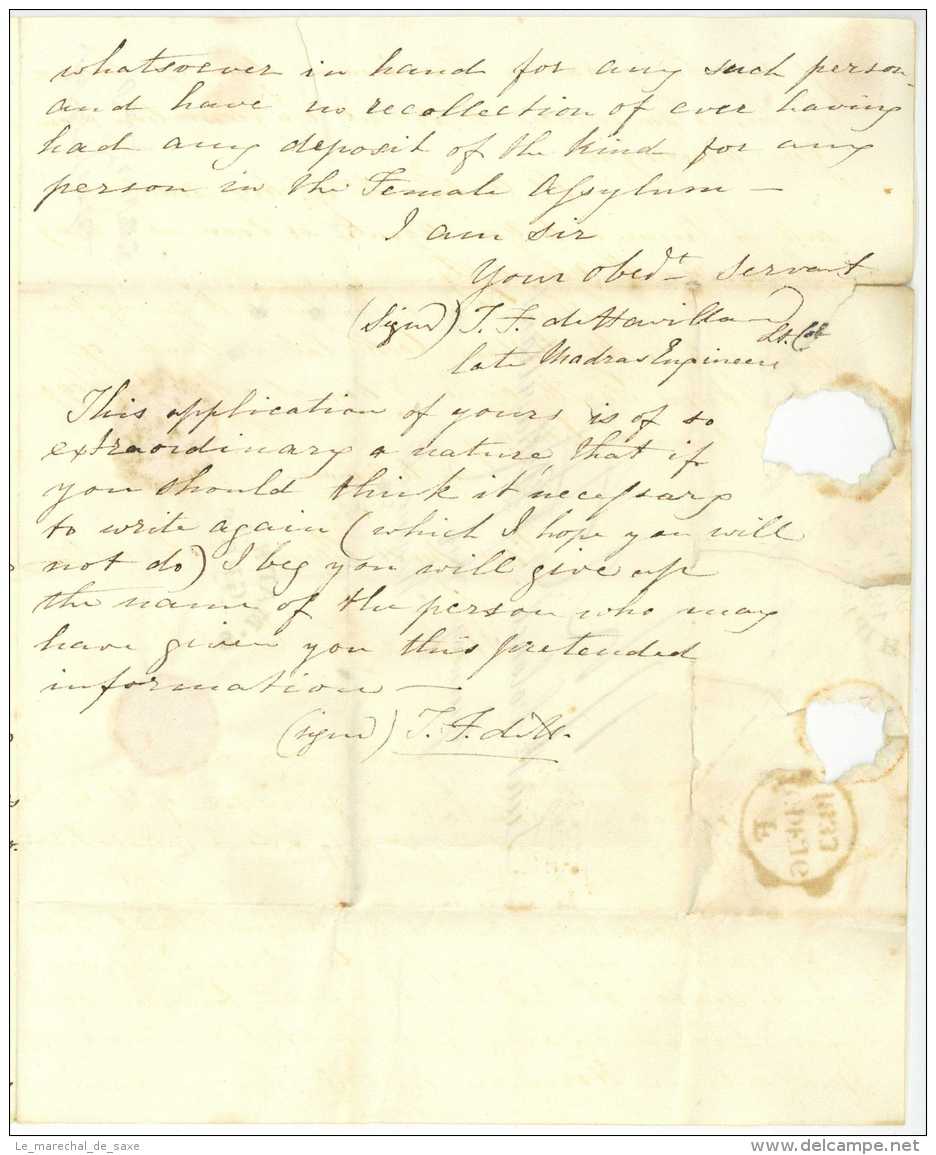 whatsoever in hand for any such person
and have no recollection of ever having
had any deposit of the kind for any
person in the Female Assylum —
I am Sir
Your Obedt. Servant
(Signd) T. F. de Havilland Lt. Col
late Madras Engineers
This application of yours is of so
extraordinary a nature, that if
you should think it necessary
to write again (which I hope you will
not do) I beg you will give up
the name of the person who may
have given you this pretended
information —
(signd) T. F. d. H.
F
1833
Le_marechal_de_saxe
delcampe.net